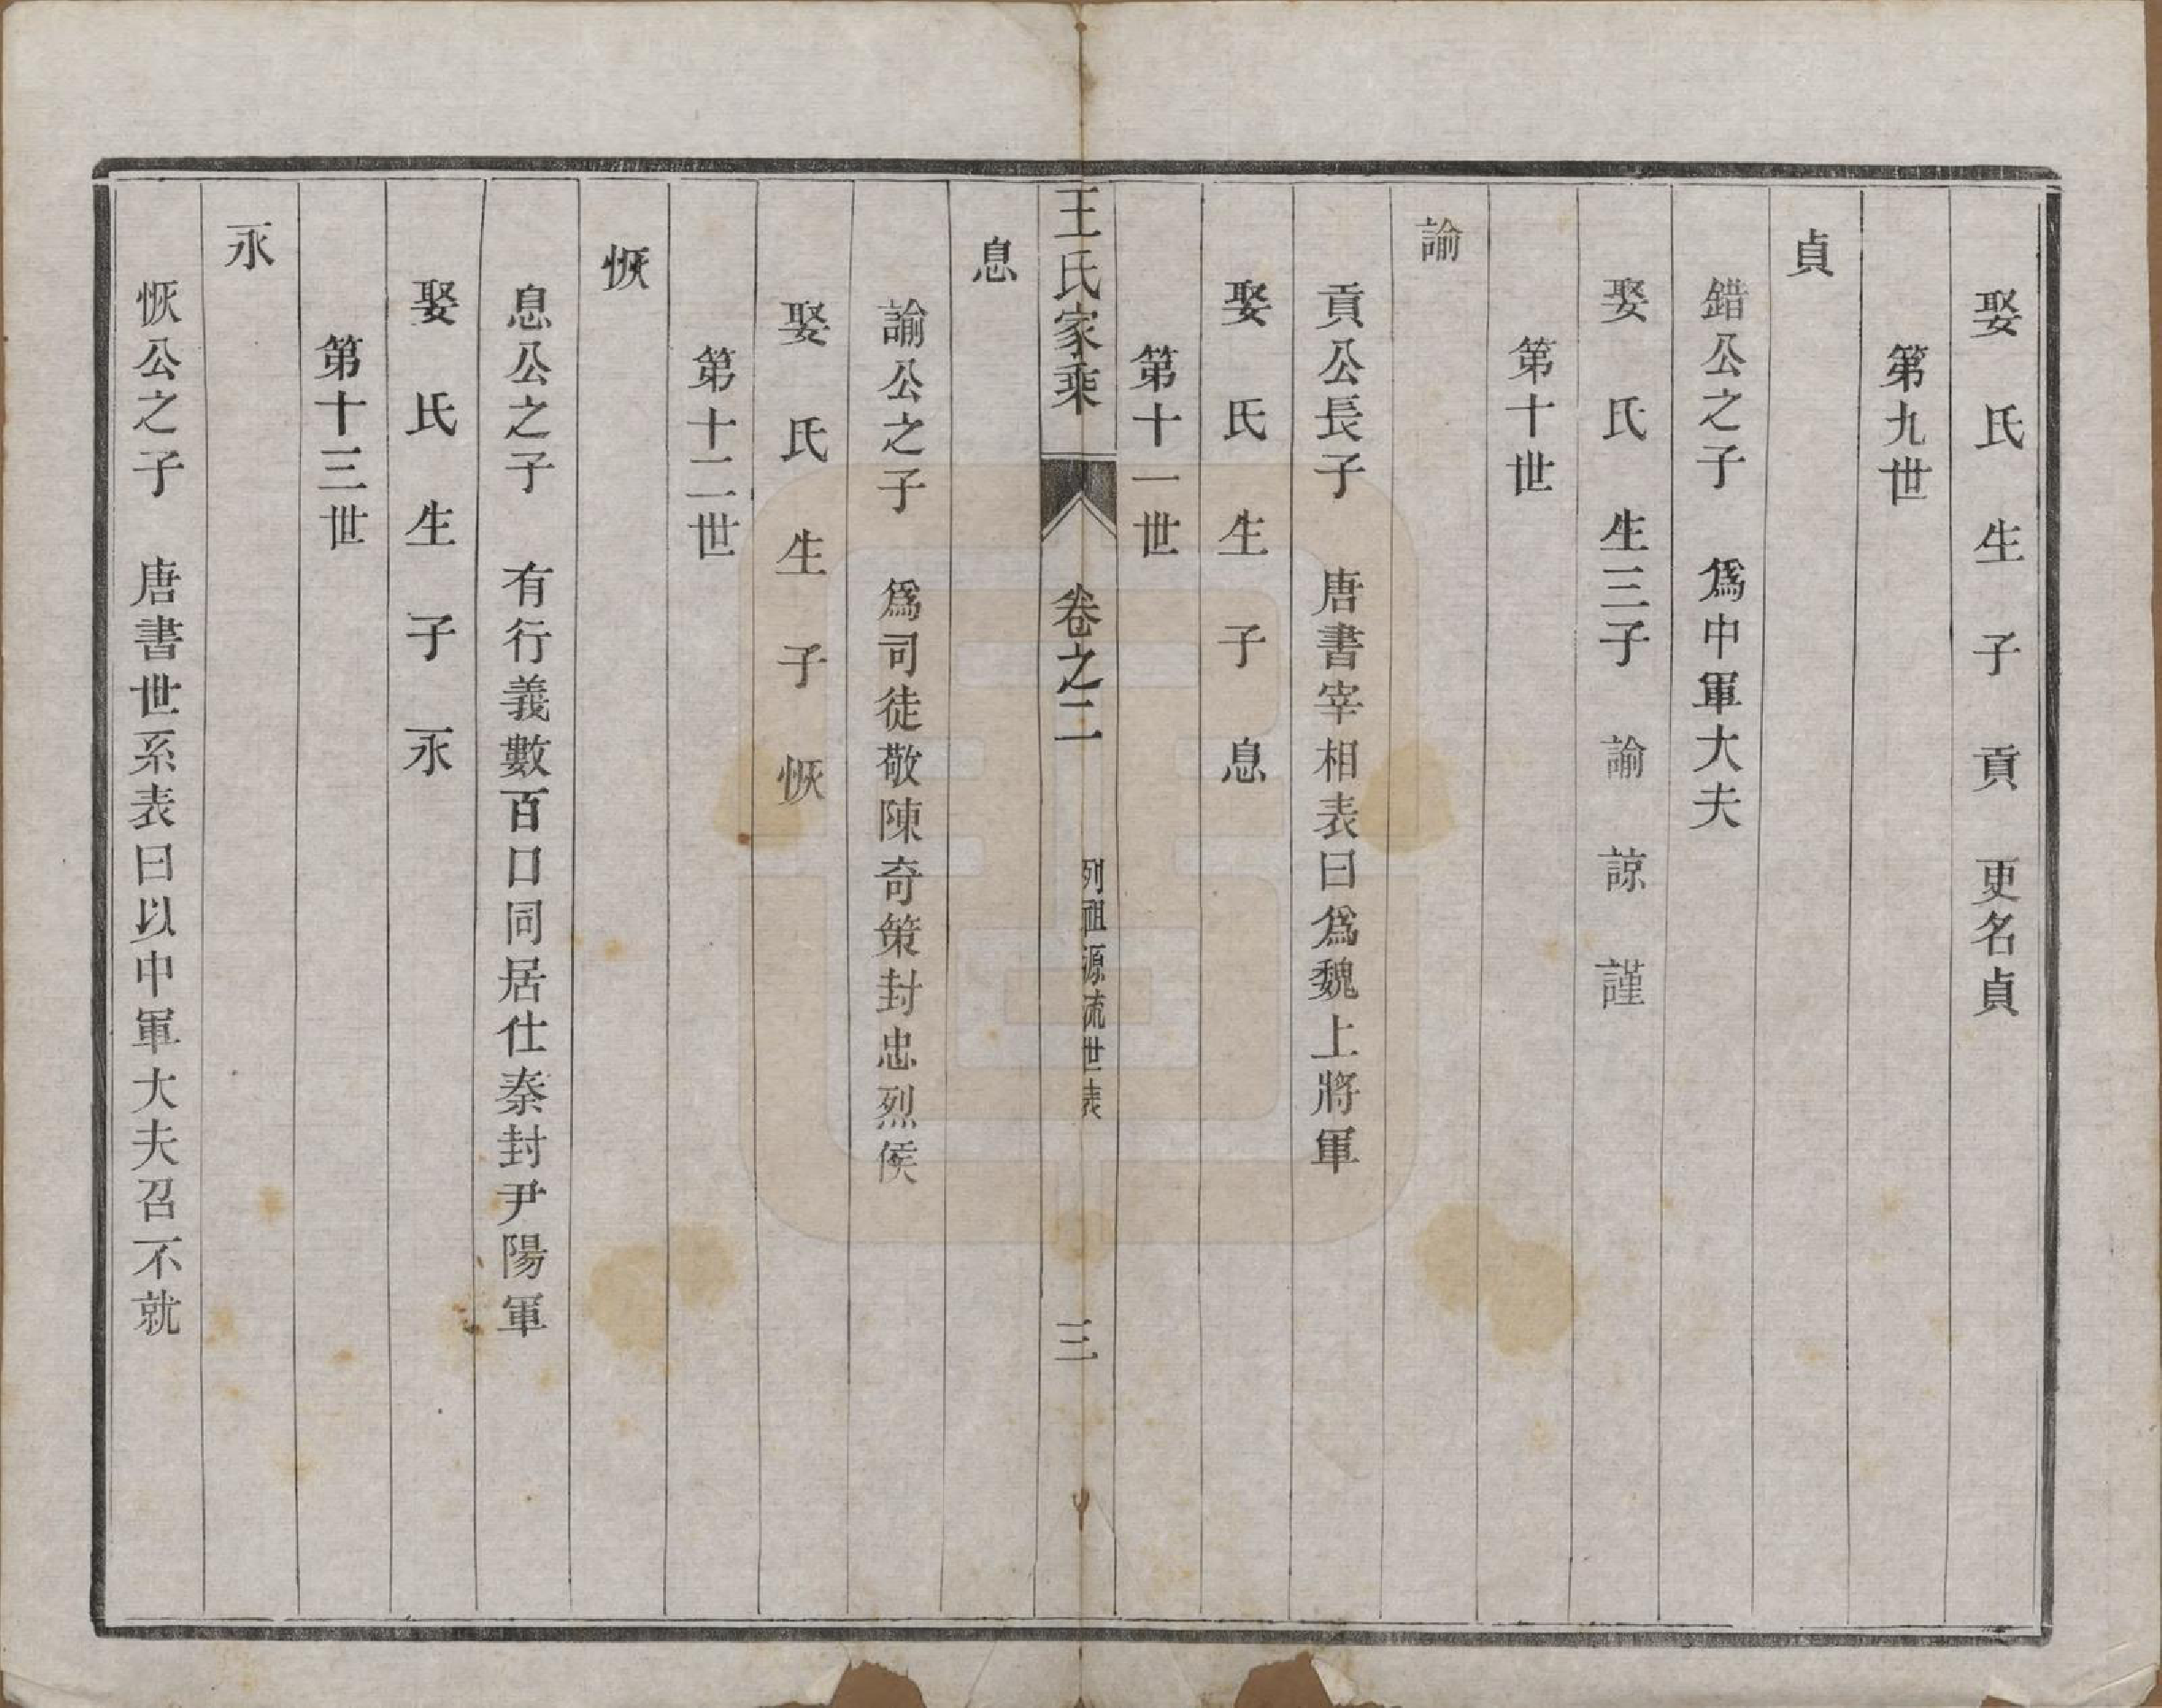 娶　氏　生　子　貢　更名貞
第九世
貞
錯公之子　爲中軍大夫
娶　氏　生三子　諭　諒　謹
第十世
諭
貢公長子　唐書宰相表曰爲魏上將軍
娶　氏　生　子　息
第十一世
王氏家乘　卷之二　列祖源流世表　三
息
諭公之子　爲司徒敬陳奇策封忠烈侯
娶　氏　生　子　恢
第十二世
恢
息公之子　有行義數百口同居仕秦封尹陽軍
娶　氏　生　子　永
第十三世
永
恢公之子　唐書世系表曰以中軍大夫召不就